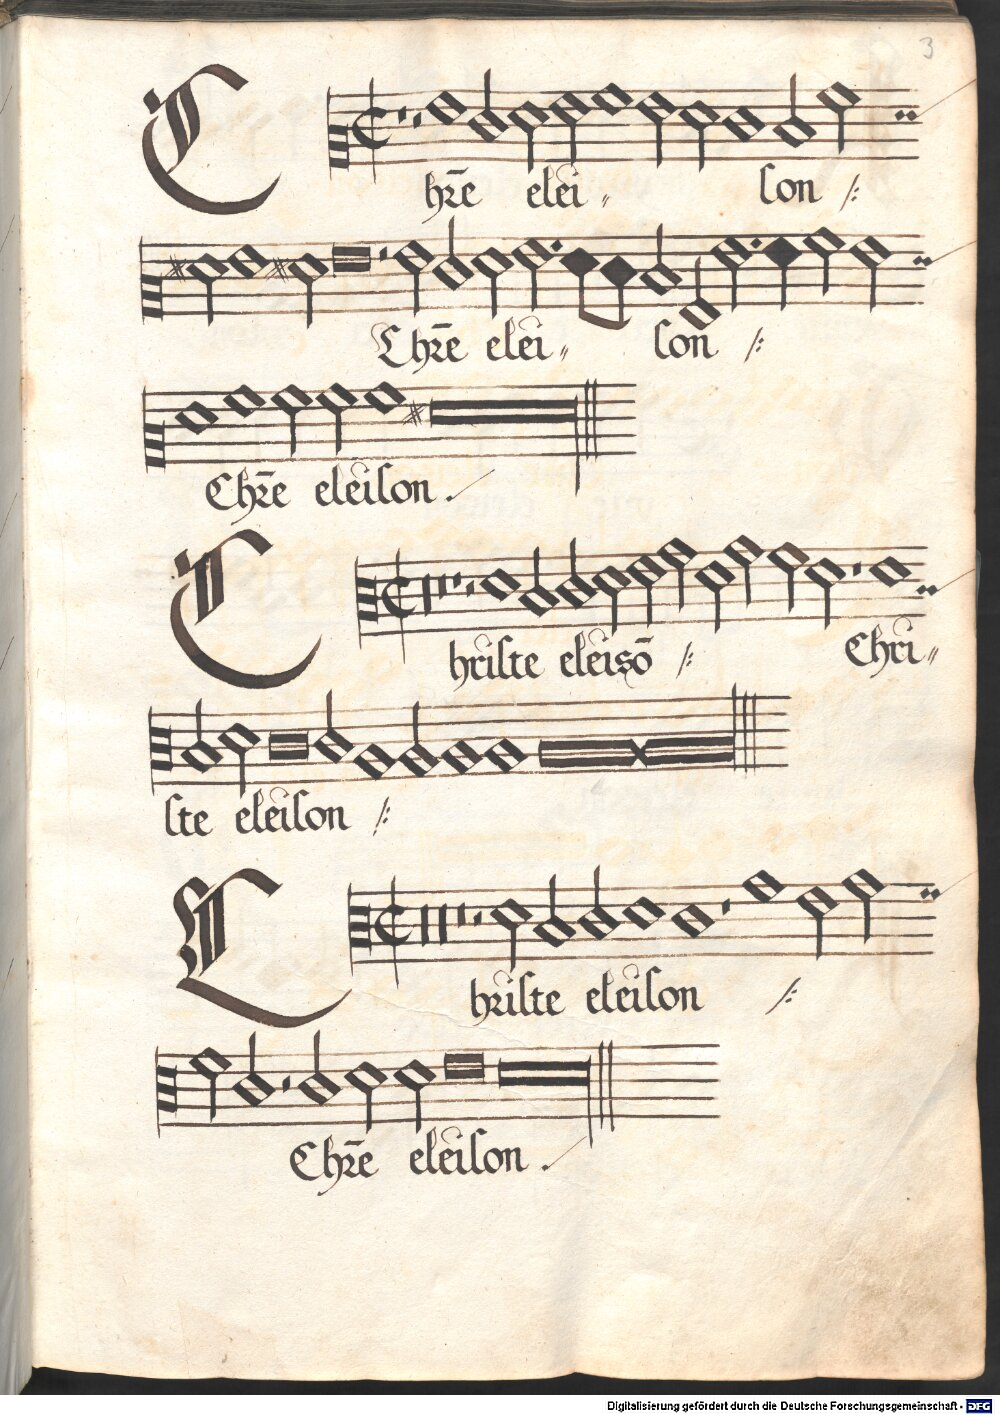 3
Chr̄e elei〃 son /:
Chr̄e elei〃 son /:
Chr̄e eleison.
Christe eleisō /: Chri〃
ste eleison /:
Christe eleison /:
Chr̄e eleison.
Digitalisierung gefördert durch die Deutsche Forschungsgemeinschaft - DFG